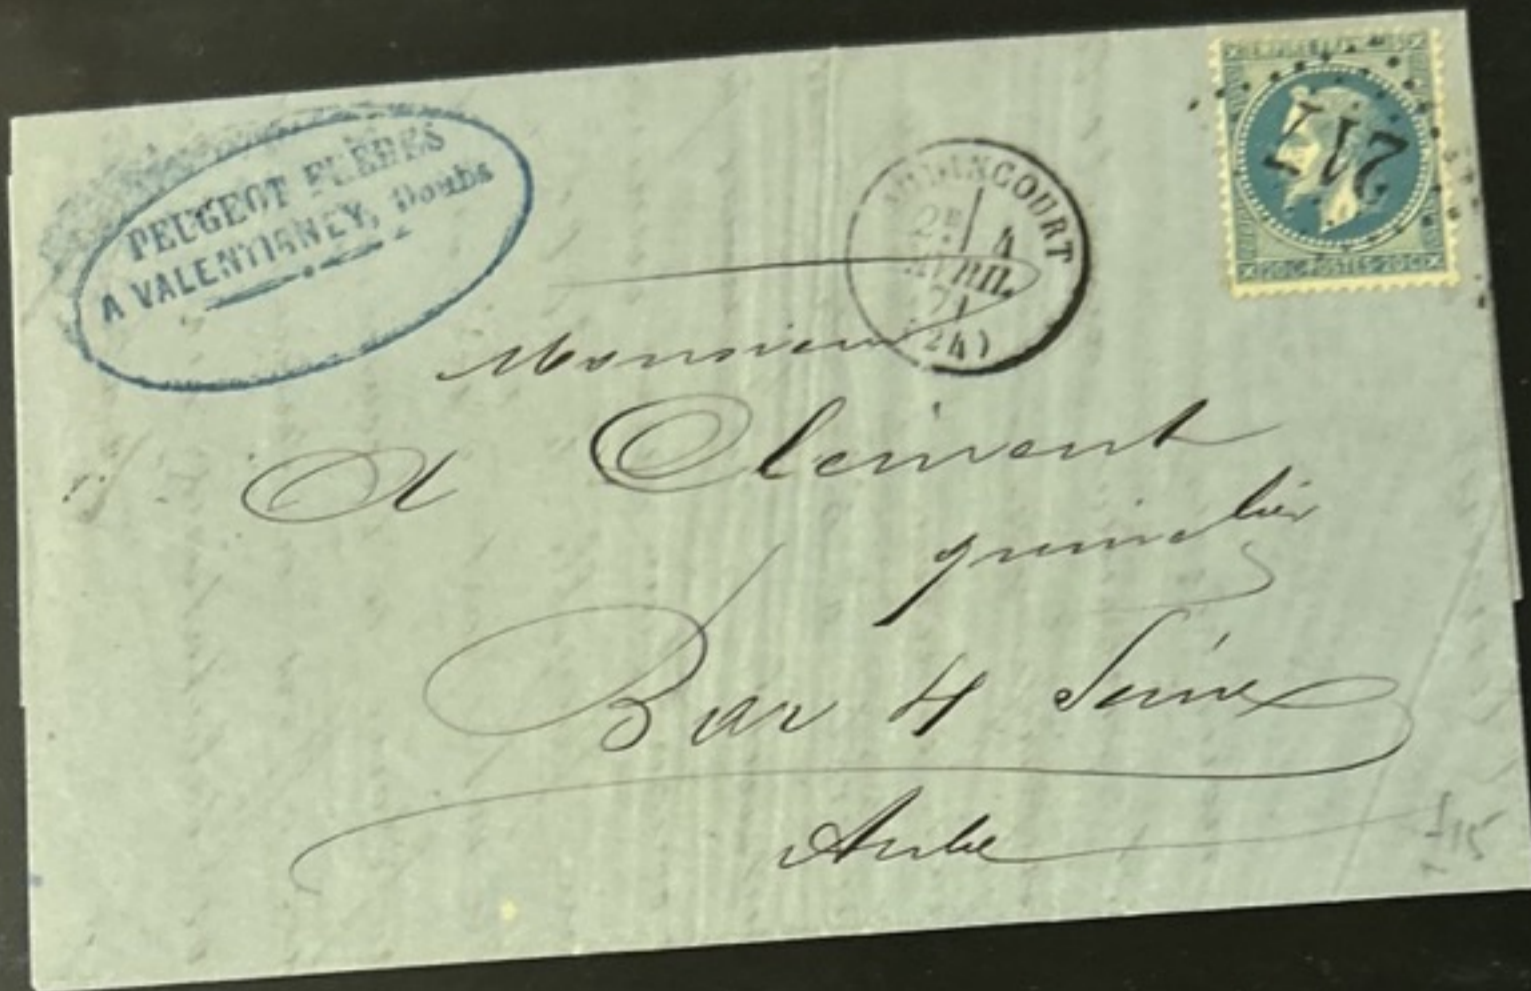 PEUGEOT FRÈRES
A VALENTIGNEY, Doubs
AUDINCOURT
2E
4
AVRIL
71
(24)
217
20 C POSTES 20 C
Monsieur
A Clément
quincalier
Bar s/ Seine
Aube